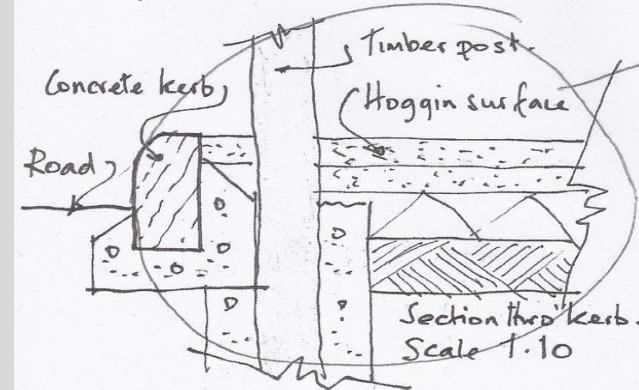 Timber post.
Concrete kerb
Hoggin surface
Road
Section thro' kerb.
Scale 1.10